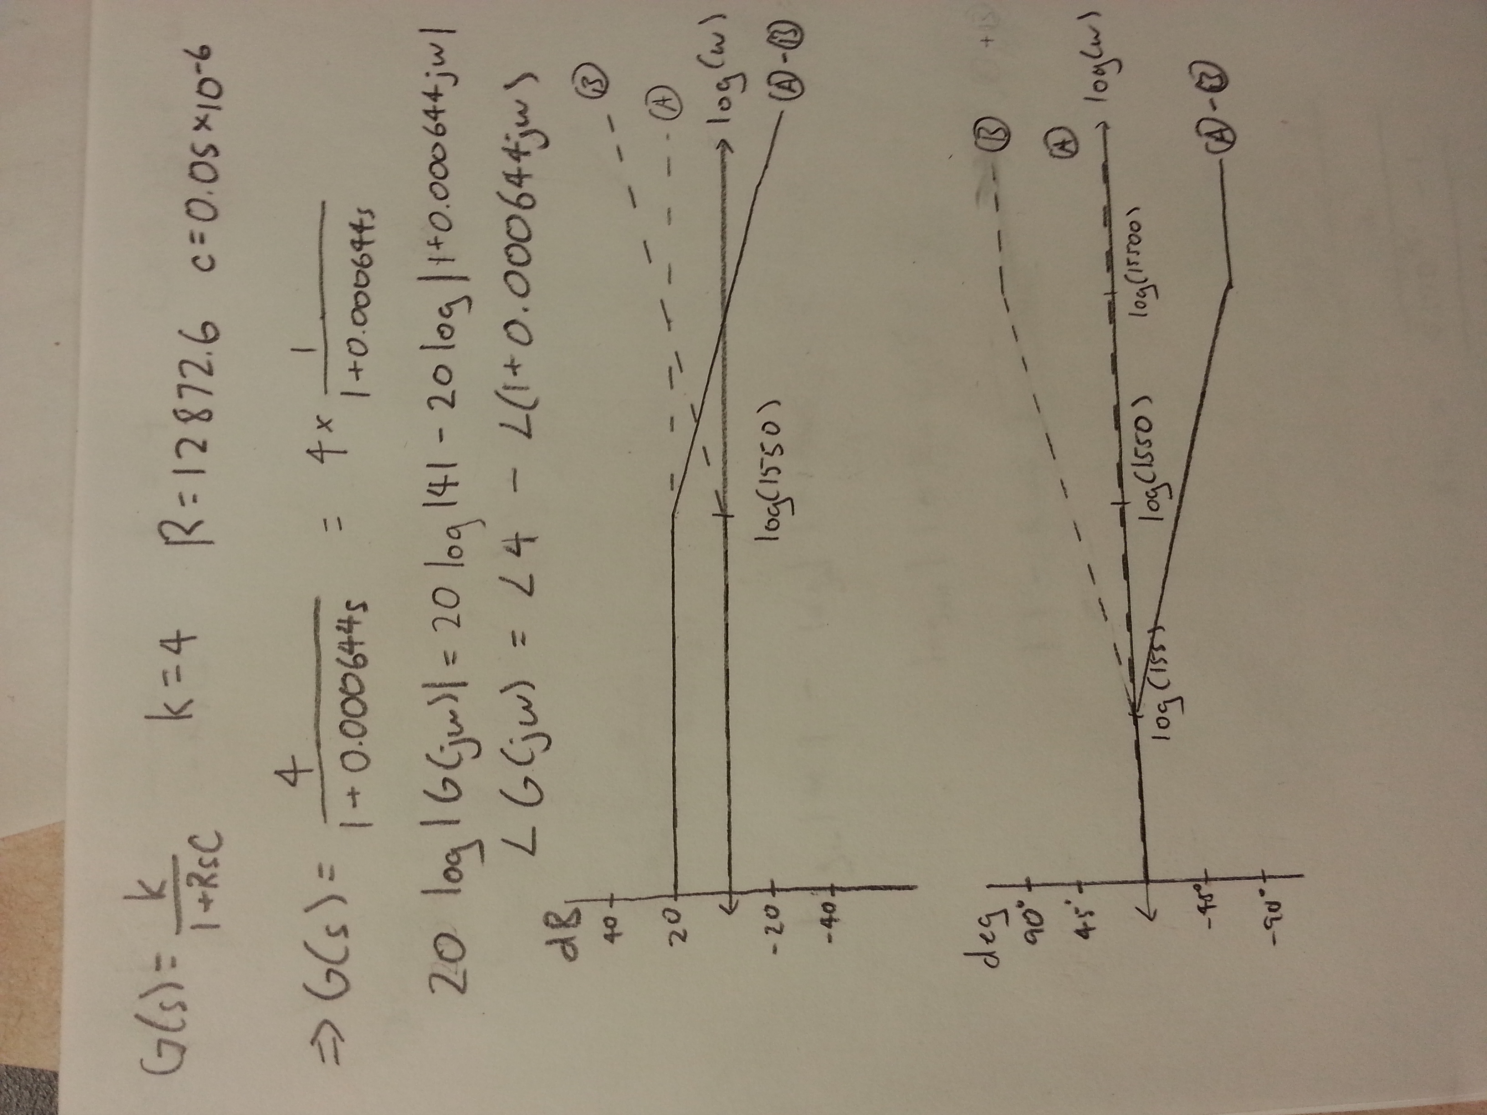 G(s) = k/(1+RsC) k=4 R=12872.6 c=0.05×10^-6
⇒ G(s) = 4/(1+0.000644s) = 4 × 1/(1+0.000644s)
20 log |G(jw)| = 20 log |4| - 20 log |1+0.000644jw|
∠G(jw) = ∠4 - ∠(1+0.000644jw)
dB
40
20
-20
-40
B
A
log(w)
A-B
log(1550)
deg
90°
45°
-45°
-90°
B
A
log(w)
A-B
log(155)
log(1550)
log(15500)